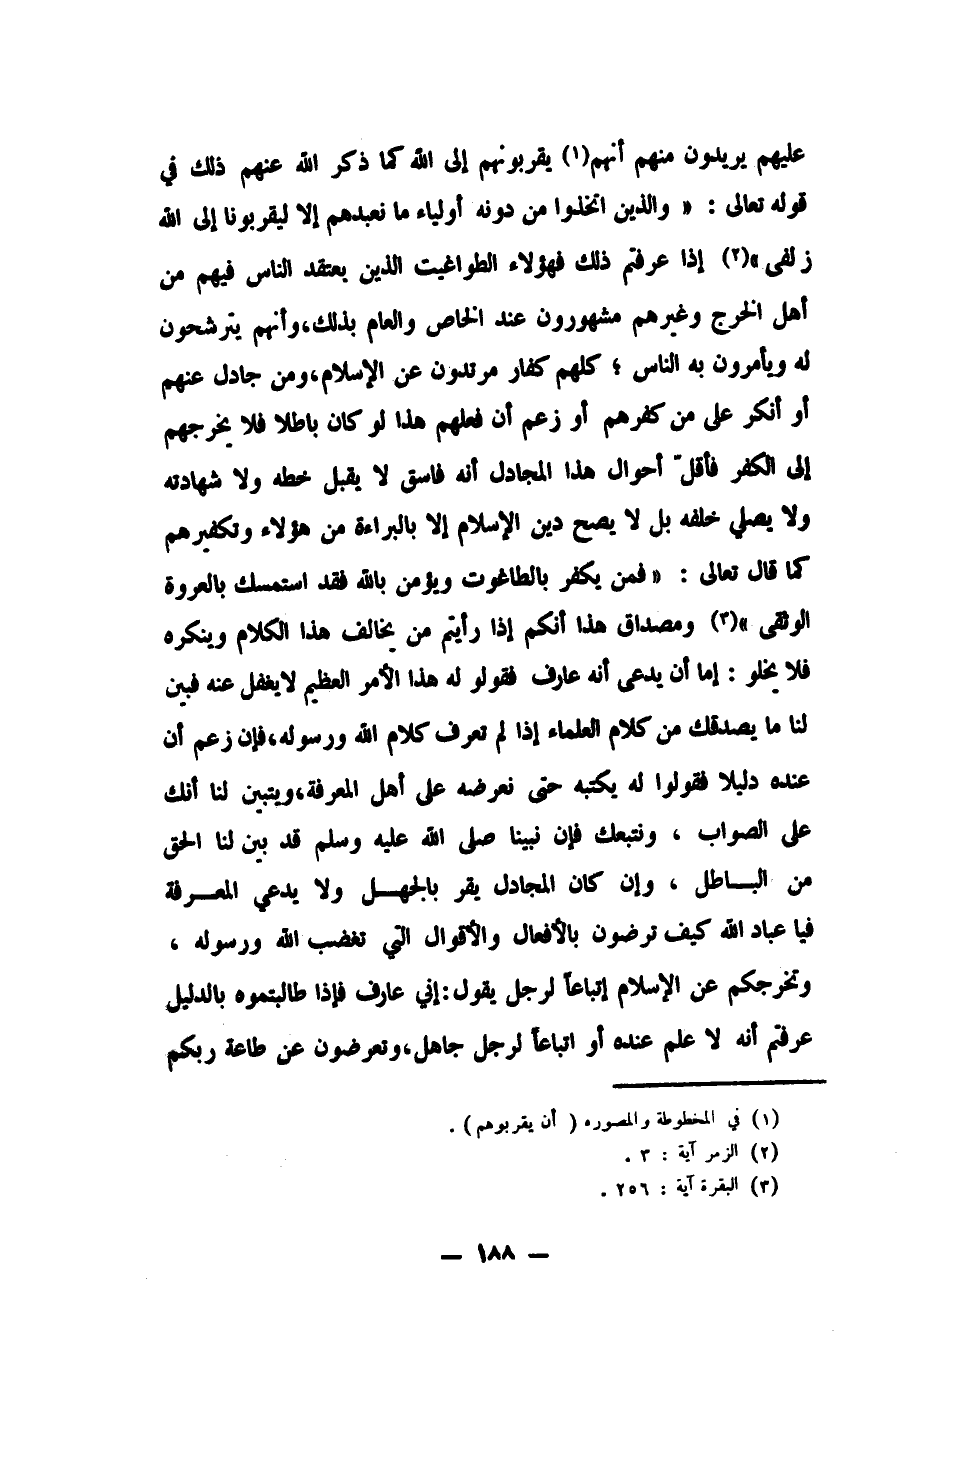 عليهم يريدون منهم أنهم(١) يقربونهم إلى الله كما ذكر الله عنهم ذلك في
قوله تعالى : « والذين اتخذوا من دونه أولياء ما نعبدهم إلا ليقربونا إلى الله
زلفى »(٢) إذا عرفتم ذلك فهؤلاء الطواغيت الذين يعتقد الناس فيهم من
أهل الخرج وغيرهم مشهورون عند الخاص والعام بذلك،وأنهم يترشحون
له ويأمرون به الناس ؛ كلهم كفار مرتدون عن الإسلام،ومن جادل عنهم
أو أنكر على من كفرهم أو زعم أن فعلهم هذا لو كان باطلا فلا يخرجهم
إلى الكفر فأقلّ أحوال هذا المجادل أنه فاسق لا يقبل خطه ولا شهادته
ولا يصلي خلفه بل لا يصح دين الإسلام إلا بالبراءة من هؤلاء وتكفيرهم
كما قال تعالى : « فمن يكفر بالطاغوت ويؤمن بالله فقد استمسك بالعروة
الوثقى »(٣) ومصداق هذا أنكم إذا رأيتم من يخالف هذا الكلام وينكره
فلا يخلو : إما أن يدعى أنه عارف فقولو له هذا الأمر العظيم لايغفل عنه فبين
لنا ما يصدقك من كلام العلماء إذا لم تعرف كلام الله ورسوله،فإن زعم أن
عنده دليلا فقولوا له يكتبه حتى نعرضه على أهل المعرفة،ويتبين لنا أنك
على الصواب ، ونتبعك فإن نبينا صلى الله عليه وسلم قد بين لنا الحق
من البـــاطل ، وإن كان المجادل يقر بالجهـــل ولا يدعي المعـــرفة
فيا عباد الله كيف ترضون بالأفعال والأقوال التي تغضب الله ورسوله ،
وتخرجكم عن الإسلام إتباعاً لرجل يقول:إني عارف فإذا طالبتموه بالدليل
عرفتم أنه لا علم عنده أو اتباعاً لرجل جاهل،وتعرضون عن طاعة ربكم
(١) في المخطوطة والمصوره ( أن يقربوهم ) .
(٢) الزمر آية : ٣ .
(٣) البقرة آية : ٢٥٦ .
— ١٨٨ —